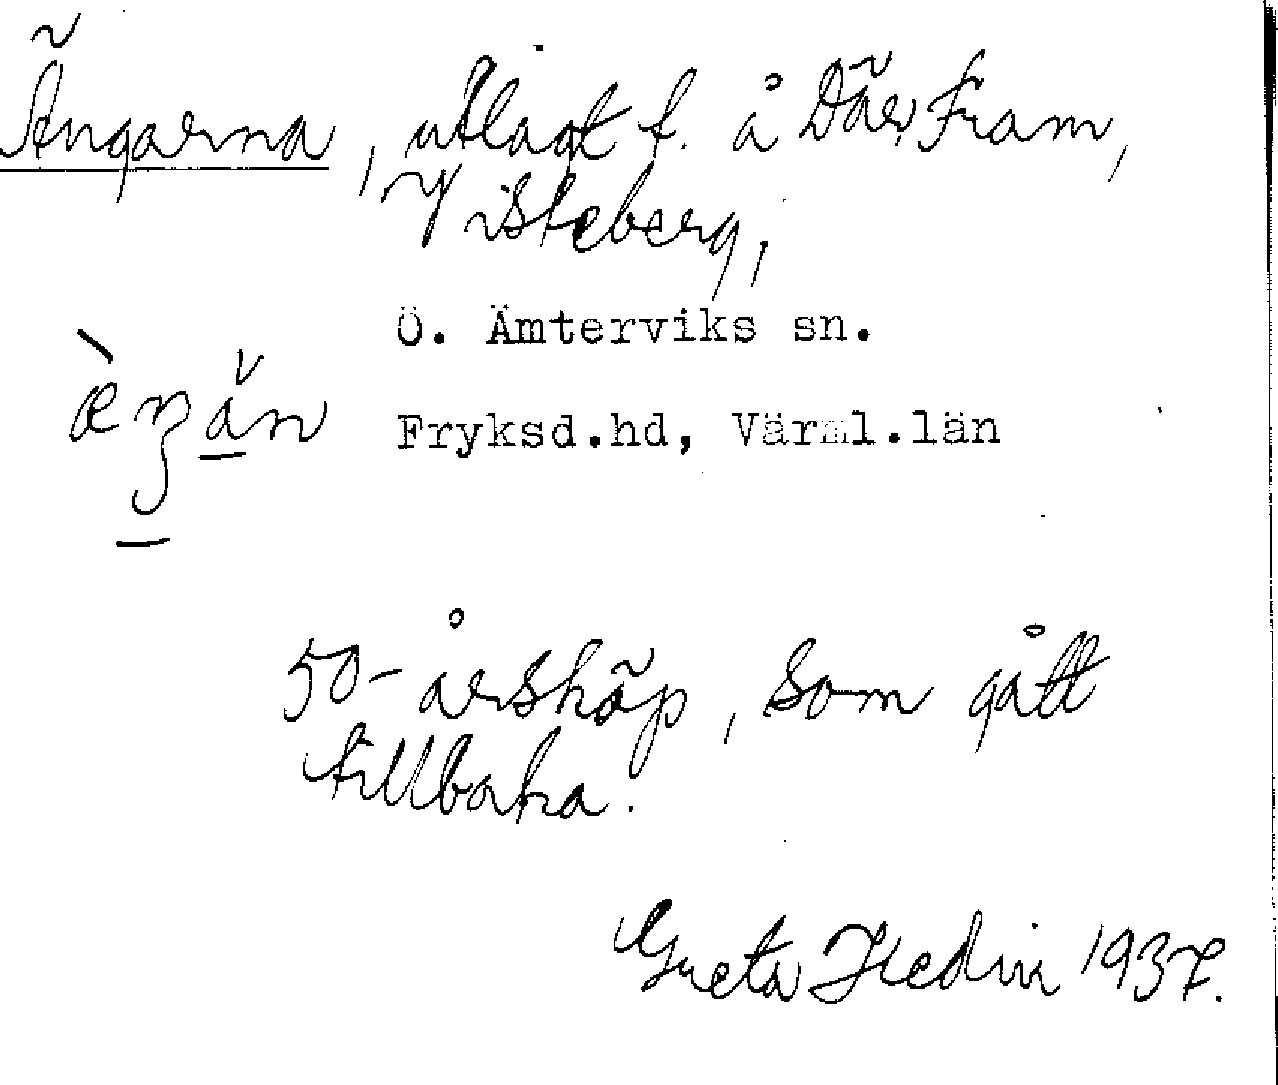 Ängarna, utlagt f. å Där Fram,
Visteberg,
Ö. Ämterviks sn.
Fryksd.hd, Värml.län
50-årsköp, som gått
tillbaka.
Greta Hedin 1937.